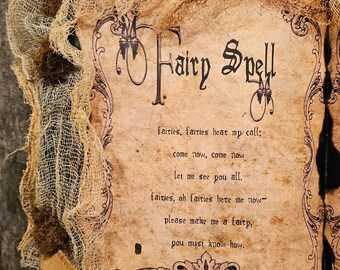 Fairy Spell
fairies, fairies hear my call;
come now, come now
let me see you all.
fairies, oh fairies here me now—
please make me a fairy,
you must know how.